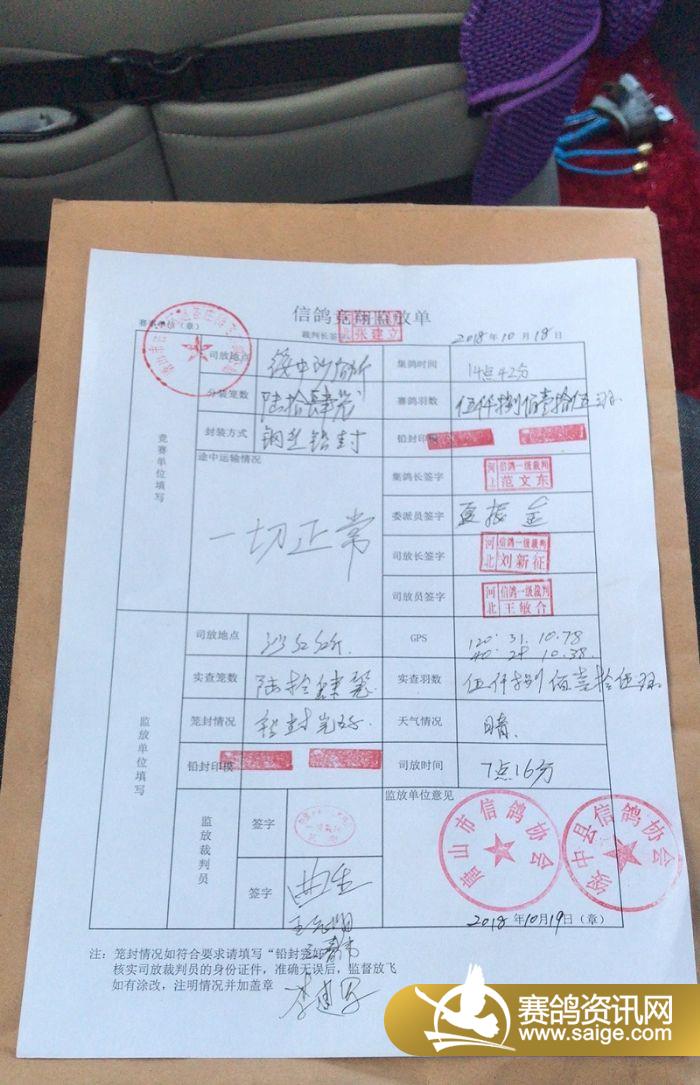 信鸽竞翔监放单
赛事单位（章）
裁判长签字 张建立
2018年10月18日
竞赛单位填写
司放地点 绥中
集鸽时间 14点42分
分装笼数 陆拾肆笼
赛鸽羽数 伍仟捌佰壹拾伍羽
封装方式 钢丝铅封
铅封印模
途中运输情况
一切正常
集鸽长签字 河北 信鸽一级裁判 范文东
委派员签字
司放长签字 河北 信鸽一级裁判 刘新征
司放员签字 河北 信鸽一级裁判 王敏合
监放单位填写
司放地点
GPS 120.31.10.78
40.24 10.38.
实查笼数 陆拾肆笼
实查羽数 伍仟捌佰壹拾伍羽
笼封情况 铅封完好.
天气情况 晴.
铅封印模
司放时间 7点16分
监放裁判员
签字
签字
监放单位意见
唐山市信鸽协会
绥中县信鸽协会
2018年10月19日（章）
注：笼封情况如符合要求请填写“铅封完好
核实司放裁判员的身份证件，准确无误后，监督放飞
如有涂改，注明情况并加盖章
赛鸽资讯网
www.saige.com